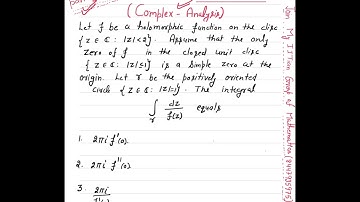 (Complex-Analysis)
Let f be a holomorphic function on the disc
{z ∈ ℂ : |z|<2}. Assume that the only
zero of f in the closed unit disc
{z ∈ ℂ : |z|≤1} is a simple zero at the
origin. Let γ be the positively oriented
circle {z ∈ ℂ : |z|=1}. The integral
∫γ dz/f(z) equals
1. 2πi f'(0).
2. 2πi f''(0).
3. 2πi
Join My JJ Tian Group of Mathematics